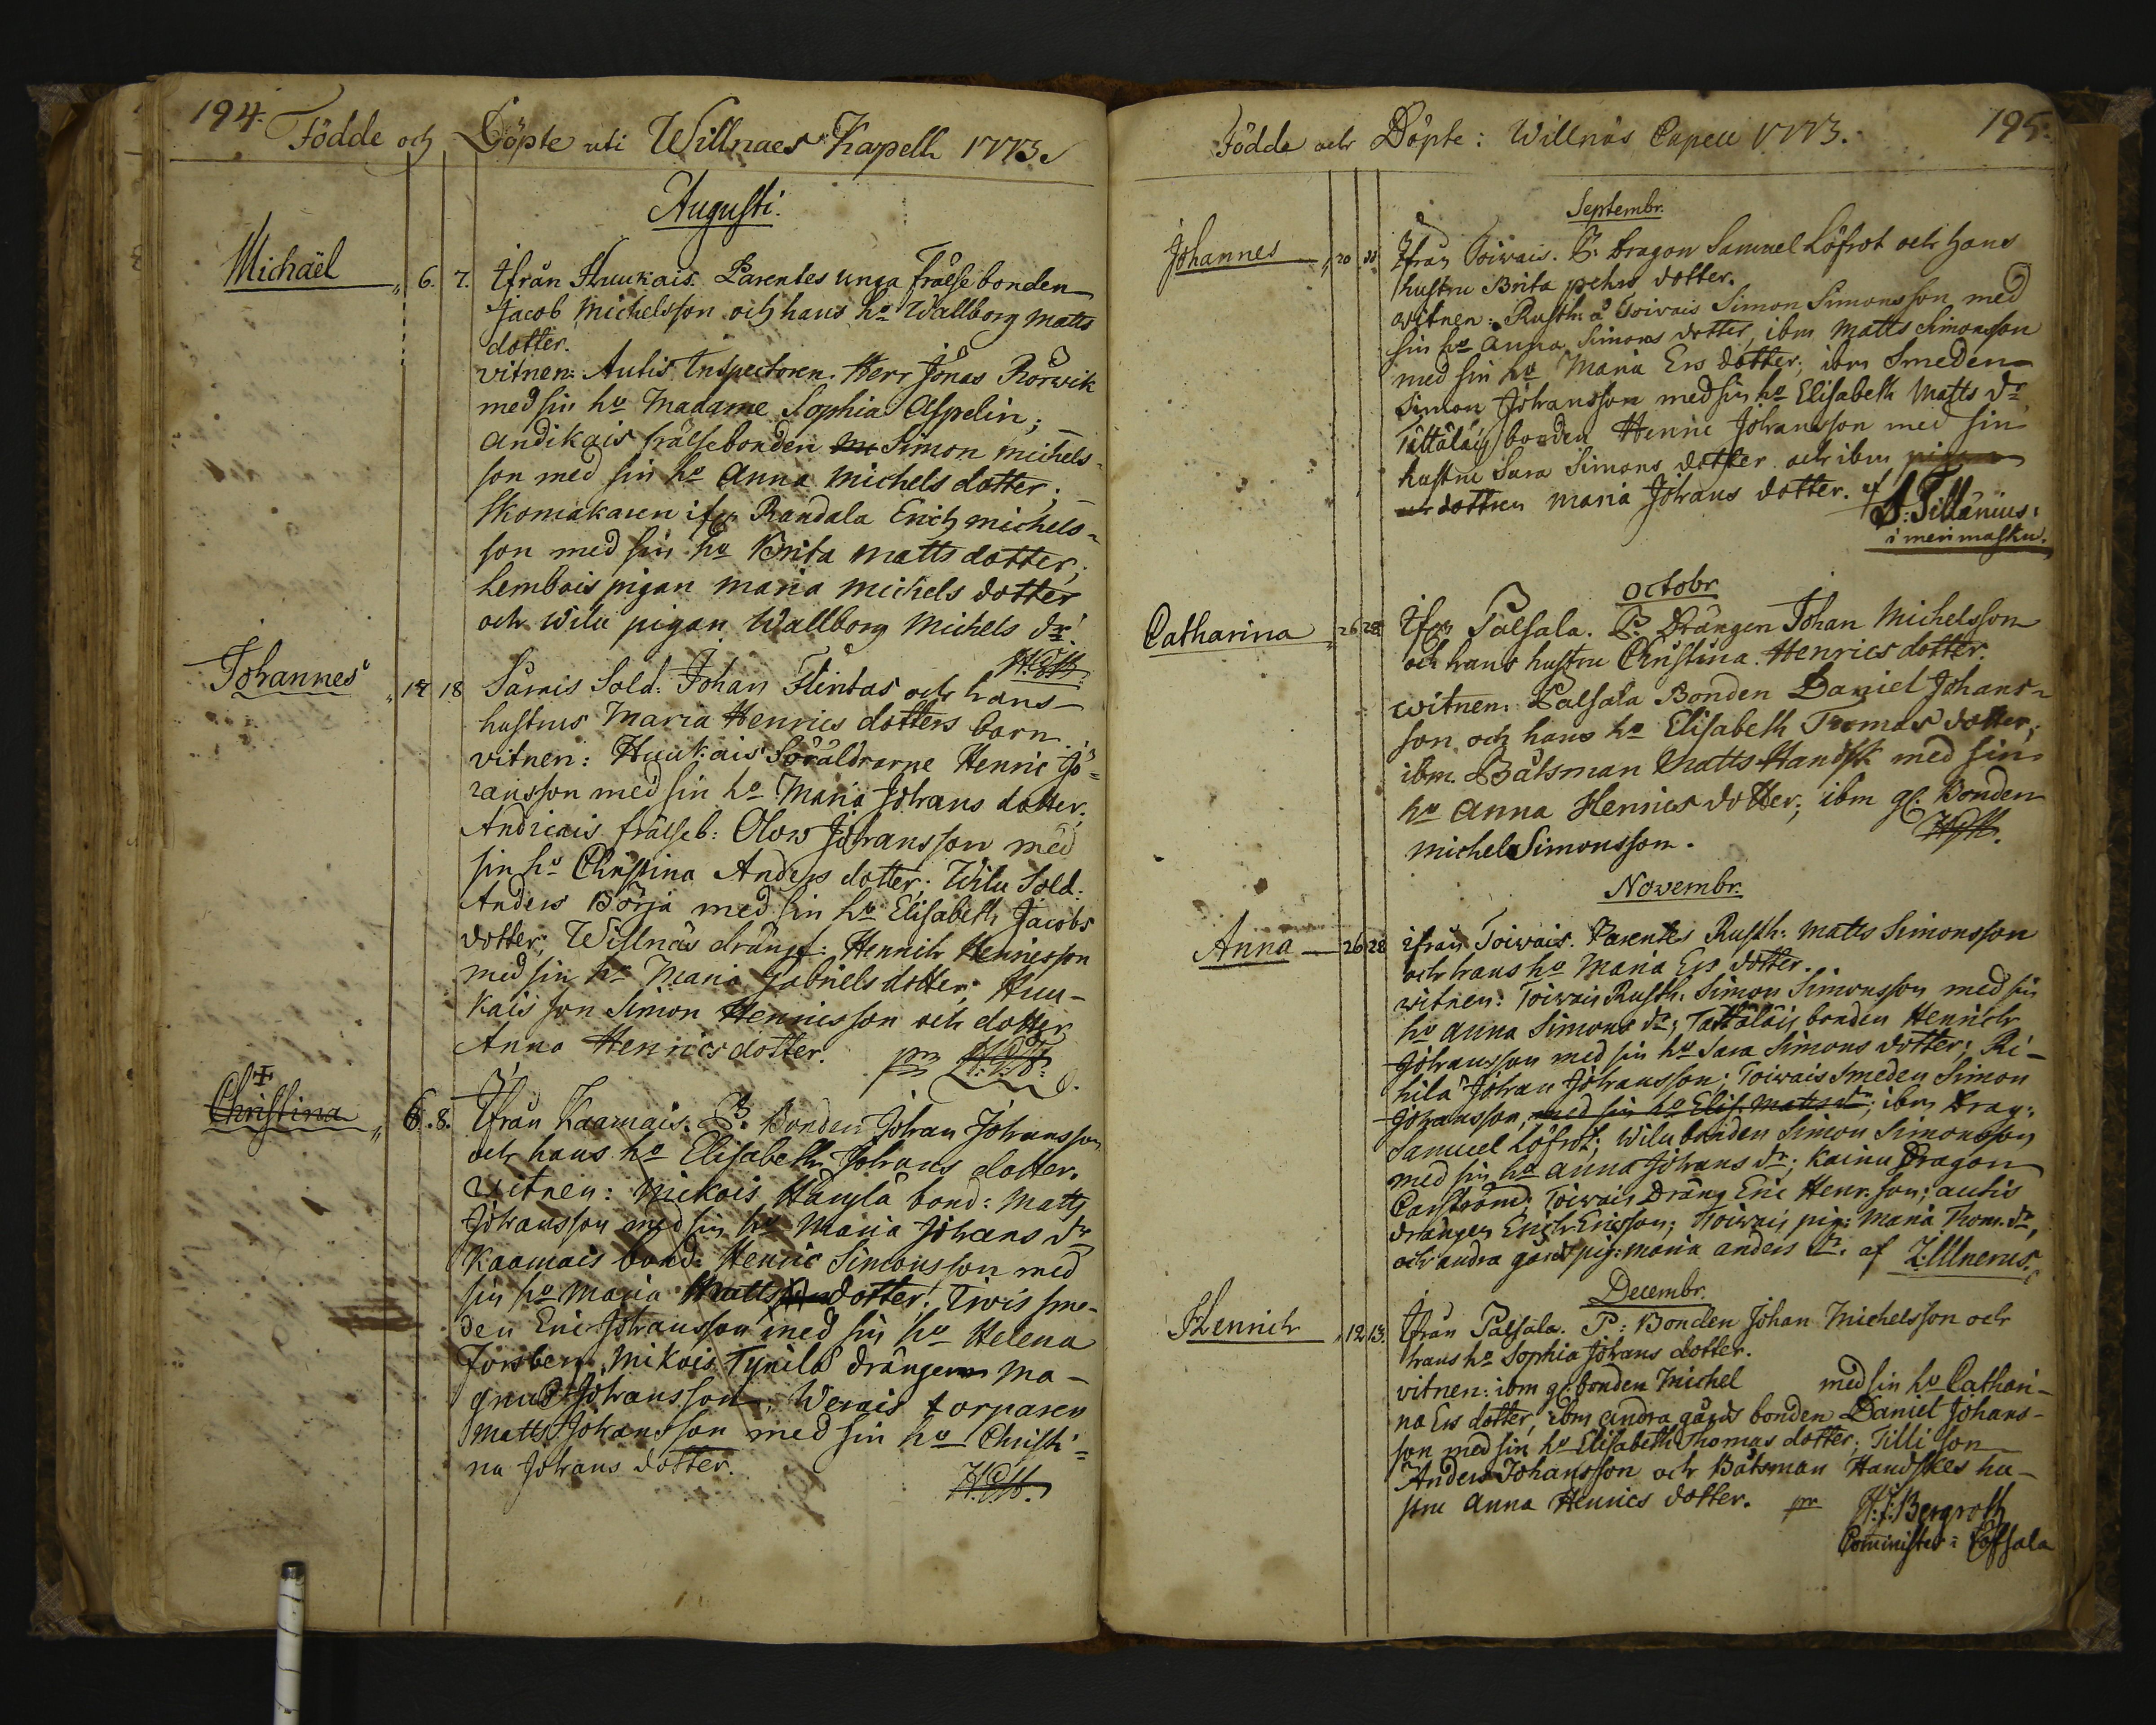 194.
Födde och Döpte uti Willnaes Kapell 1773.
Augusti.
Michaël 6. 7. Ifrån Huukais. Parentes unga frälsebonden
Jacob Michelsson och hans ho Wallborg Matts
dotter.
vitnen: Autis Inspectoren Herr Jonas Rörwik
med sin ho Madame Sophia Aspelin;
Andikais frälsebonden Simon michels-
son med sin ho Anna Michels dotter;
Skomakaren ifrn Randala Erich michels-
son med sin ho Brita Matts dotter;
Lembois pigan Maria Michels dotter
och Wilu pigan Wallborg Michels dr.
Johannes 17 18 Särnis Sold: Johan Flintas och hans
hustrus Maria Henrics dotters barn
vitnen: Huukais Föräldrarne Henric Jo-
hansson med sin ho Maria Johans dotter;
Andicais frälseb: Olow Johansson med
sin ho Christina Anders dotter; Wilu Sold:
Anders Börja med sin ho Elisabeth Jacobs
dotter; Willnäs drängf: Henrich Henricsson
med sin ho Maria Gabriels dotter; Huu-
kais son Simon Henricsson och dotter
Anna Henrics dotter.
Christina 6. 8. Ifrån Kaamais. P. Bonden Johan Johansson
och hans ho Elisabeth Johans dotter.
Witnen: Mickois Hangla bond: Matts
Johansson med sin ho Maria Johans dr
Kaamais bond: Henric Simonsson med
sin ho Maria Matts dotter; Tivis sme-
den Eric Johansson med sin ho Helena
Forsberg; Mikois Tynilä drängen Ma-
gnus Johansson; Werais torparen
Matts Johansson med sin ho Christi-
na Johans dotter.
195.
Födde och Döpte: Willnäs Capell 1773.
Septembr.
Johannes 20 Ifrån Toivais. P. Dragon Samuel Löfrot och hans
hustru Brita pehrs dotter.
witnen: Rusth: å Toivais Simon Simonsson med
sin ho Anna Simons dotter, ibm Matts Simonsson
med sin ho Maria Ers dotter; ibm Smeden
Simon Johansson med sin ho Elisabeth Matts dr
Tättäläis bonden Henric Johansson med sin
hustru Sara Simons dotter och ibm
dottren Maria Johans dotter. af
S: Tillänius:
i merimasku.
Octobr.
Catharina 26 28 Ifrn Palsala. P. Drängen Johan Michelsson
och hans hustru Christina Henrics dotter.
witnen: Palsala Bonden Daniel Johans-
son och hans ho Elisabeth Thomas dotter;
ibm. Båtsman Matts Handsk med sin
ho Anna Henrics dotter; ibm gl. Bonden
Michel Simonsson.
Novembr.
Anna 26 28 ifrån Toivais. Parentes Rusth: Matts Simonsson
och hans ho Maria Ers dotter.
witnen: Toivais Rusth: Simon Simonsson med sin
ho Anna Simons dr; Tättäläis bonden Henrich
Johansson med sin ho Sara Simons dotter; Ri-
hilä Johan Johansson; Toivais Smeden Simon
Johansson, med sin ho Elis. Matts dr; ibm Drag:
Samuel Löfrot; Wilu bonden Simon Simonsson
med sin ho Anna Johans dr; Kainu Dragon
Carström; Toivais Dräng Eric Henr. son; autis
drängen Erich Ericsson; Toivais pig: Maria Thom. dr,
och andra gårds pig: Maria Anders dr. af Z: Ulnerus.
Decembr.
Henrich 12 13. Ifrån Palsala. P: Bonden Johan Michelsson och
hans ho Sophia Johans dotter.
vitnen: ibm gl: bonden Michel med sin ho Cathari-
na Ers dotter, ibm andra gårds bonden Daniel Johans-
son med sin ho Elisabeth Thomas dotter; Tilli son
Anders Johansson och Båtsman Handskes hu-
stru Anna Henrics dotter. pr H: J: Bergroth
Cominister: Töfsala